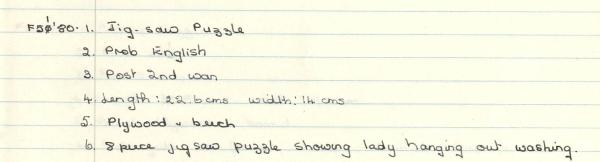 F50'80. 1. Jig-saw Puzzle
2. Prob English
3. Post 2nd war
4. Length: 22.6cms width: 14 cms
5. Plywood & beech
6. 8 piece jigsaw puzzle showing lady hanging out washing.